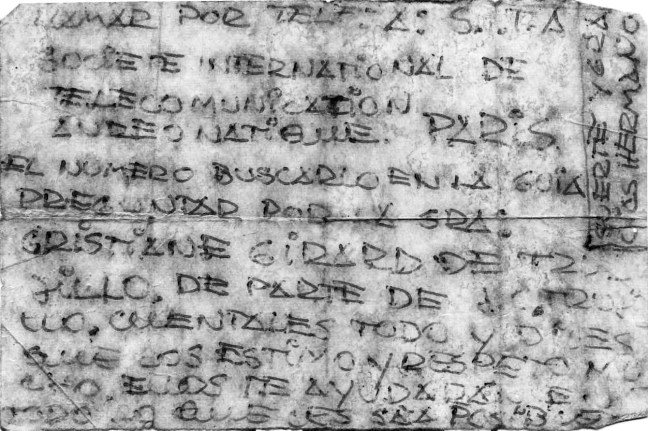 LLAMAR POR TELF: A: S.I.T.A
SOCIETE INTERNATIONAL DE
TELECOMUNICATION
AUREONATIQUE. PARIS.
EL NUMERO BUSCARLO EN LA GUIA
PREGUNTAR POR LA SRA:
CRISTIANE GIRARD DE TRU
JILLO. DE PARTE DE TRUJI
LLO. CUENTALES TODO Y DILES
QUE LOS ESTIMO Y RESPETO MU
CHO. ELLOS TE AYUDARAN EN
TODO LO QUE LES SEA POSIBLE
SUERTE
HERMANO